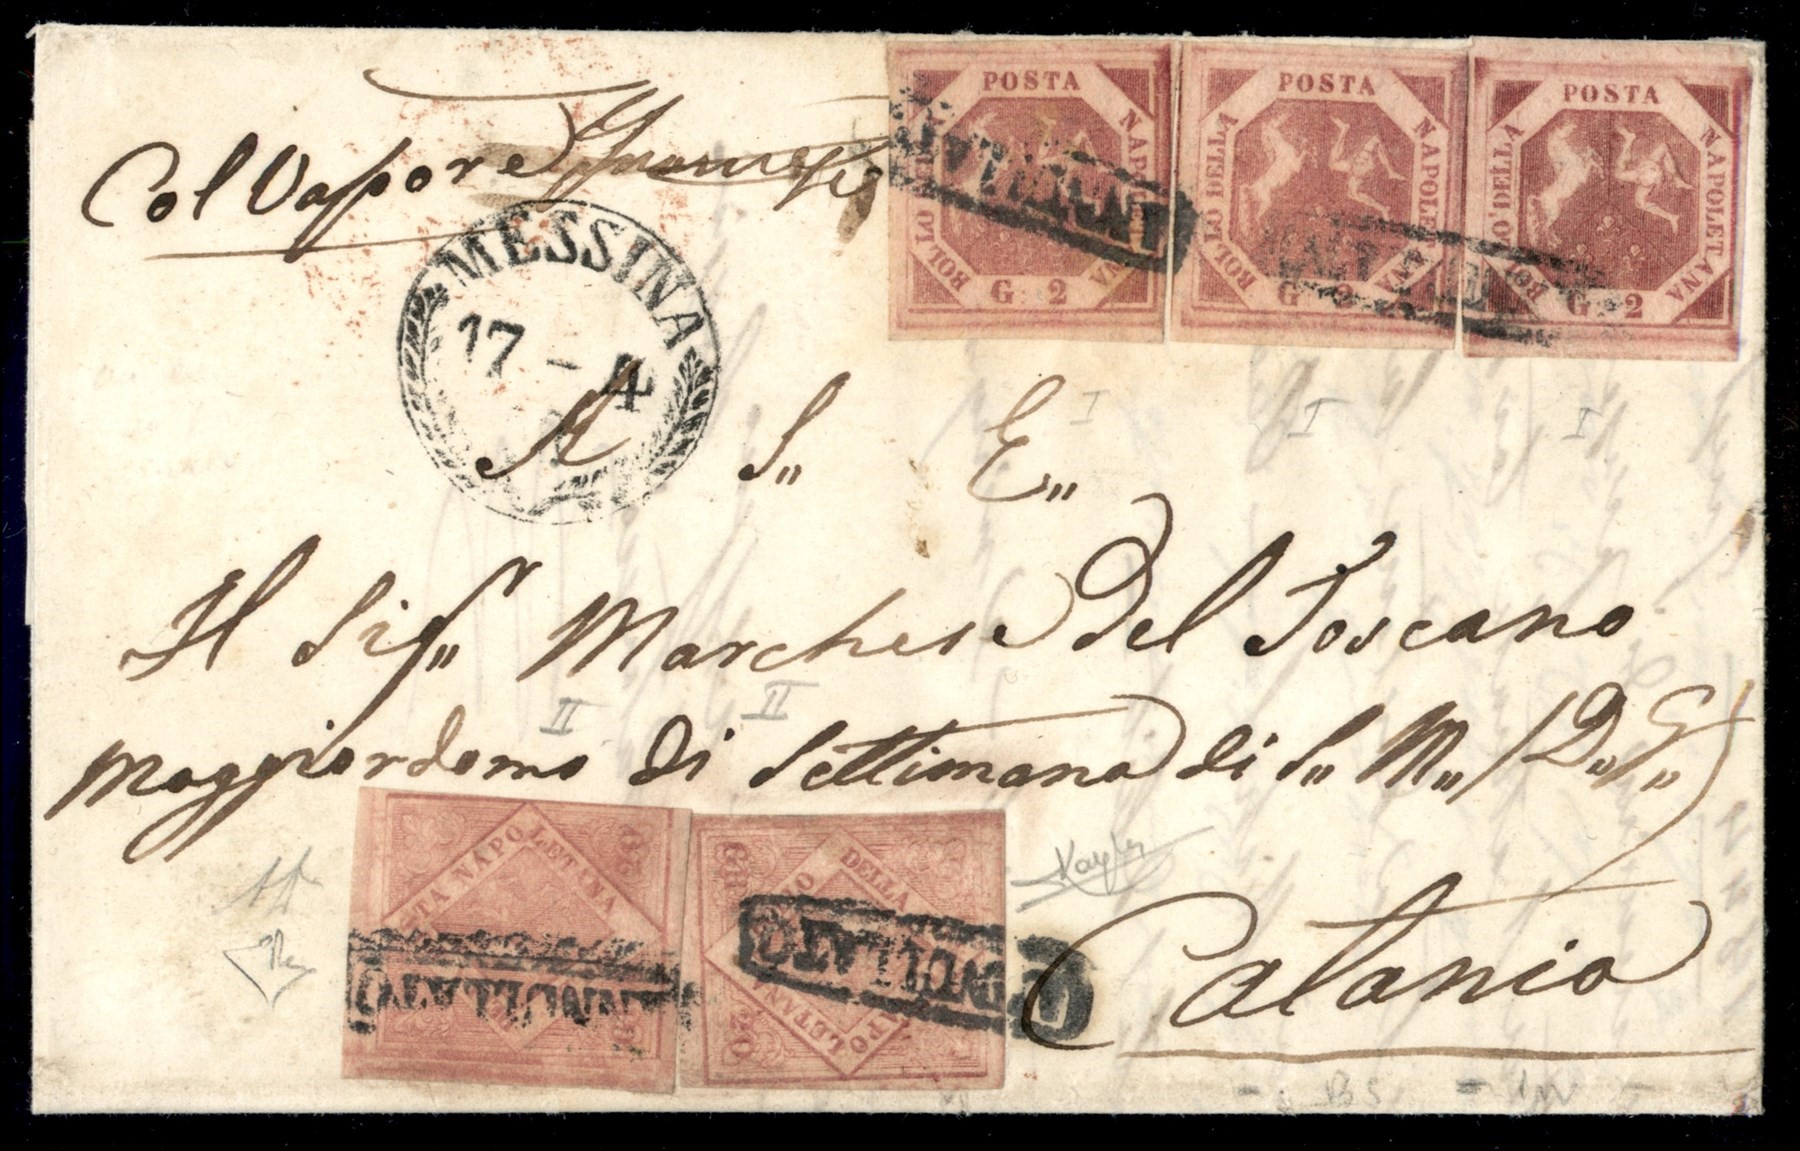 POSTA NAPOLETANA BOLLO DELLA G. 2
POSTA NAPOLETANA BOLLO DELLA G. 2
POSTA NAPOLETANA BOLLO DELLA G. 2
ANNULLATO
Col Vapore
MESSINA
17 - 4
A S,, E,,
I I I
Il Sigr,, Marchese Del Toscano
II II
Maggiordomo di Settimana di S,, M,, (D,, G,,)
TA NAPOLETANA
DELLA
NAPOLETANA
ANNULLATO
ANNULLATO
Catania